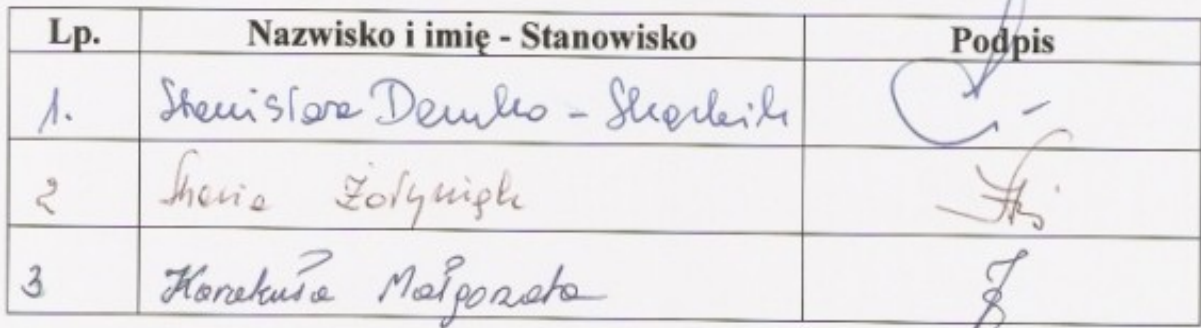 Lp. Nazwisko i imię - Stanowisko Podpis
1. Stanisława Demko -
2 Żołyniak
3 Karakuła Małgorzata